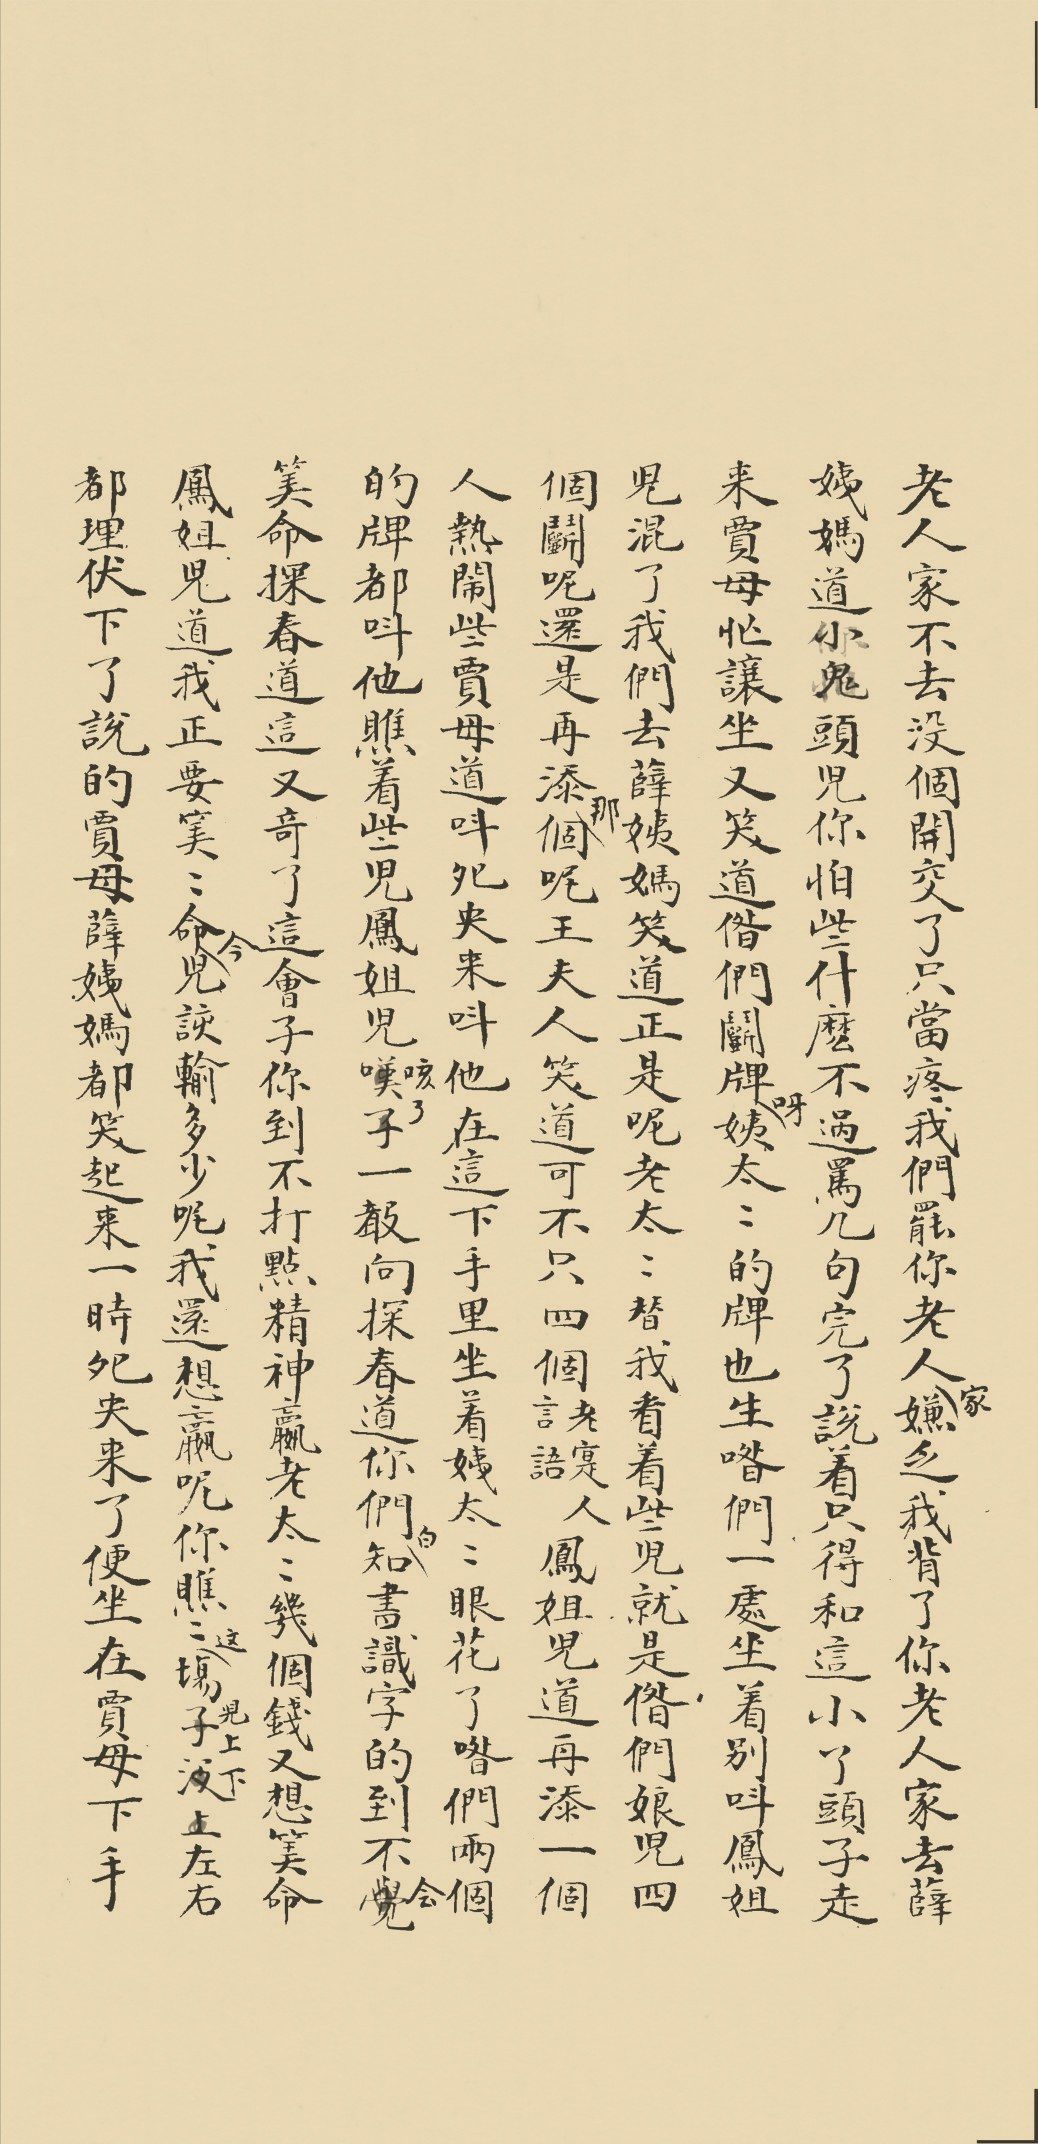 老人家不去没個開交了只當疼我們罷你老人家嫌乏我背了你老人家去薛
姨媽道小鬼頭児你怕些什麽不過罵几句完了說着只得和這小丫頭子走
来賈母忙讓坐又笑道偺們鬬牌呀姨太〻的牌也生喒們一處坐着别呌鳳姐
児混了我們去薛姨媽笑道正是呢老太〻替我看着些児就是偺們娘児四
個鬬呢還是再添那個呢王夫人笑道可不只四個老寔人言語鳳姐児道再添一個
人熱鬧些賈母道呌夗央来呌他在這下手里坐着姨太〻眼花了喒們兩個
的牌都呌他瞧着些児鳳姐児嘆咳了子一聲向探春道你們知白書識字的到不覺会
筭命探春道這又奇了這會子你到不打點精神贏老太〻幾個錢又想筭命
鳳姐児道我正要筭〻命今児該輸多少呢我還想贏呢你瞧〻这場子児上下没上左右
都埋伏下了說的賈母薛姨媽都笑起来一時夗央来了便坐在賈母下手